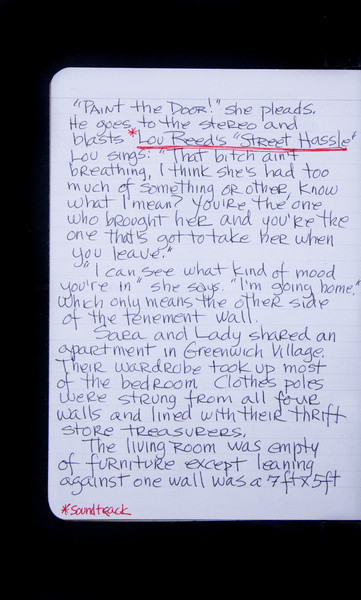 "Paint the Door!" she pleads.
He goes to the stereo and
blasts *Lou Reed's "Street Hassle"
Lou sings: "That bitch ain't
breathing, I think she's had too
much of something or other, know
what I mean? You're the one
who brought her and you're the
one that's got to take her when
you leave."
"I can see what kind of mood
you're in" she says. "I'm going home."
Which only means the other side
of the tenement wall.
Sara and Lady shared an
apartment in Greenwich Village.
Their wardrobe took up most
of the bedroom Clothes poles
were strung from all four
walls and lined with their thrift
store treasurers.
The living room was empty
of furniture except leaning
against one wall was a 7ft x 5ft
*Soundtrack